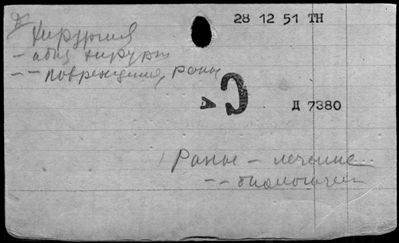 28 12 51 ТН
Хирургия
– общ хирург
– – повреждения, раны
С
Д 7380
Раны – лечение
– – биологичес